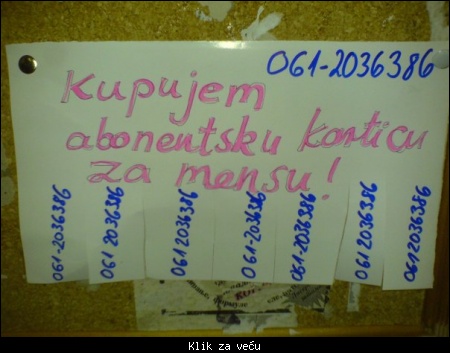 061-2036386
Kupujem
abonentsku karticu
za mensu!
061-2036386
061 2036386
061 2036386
061-2036386
061-2036386
061 2036386
061 2036386
Klik za veću